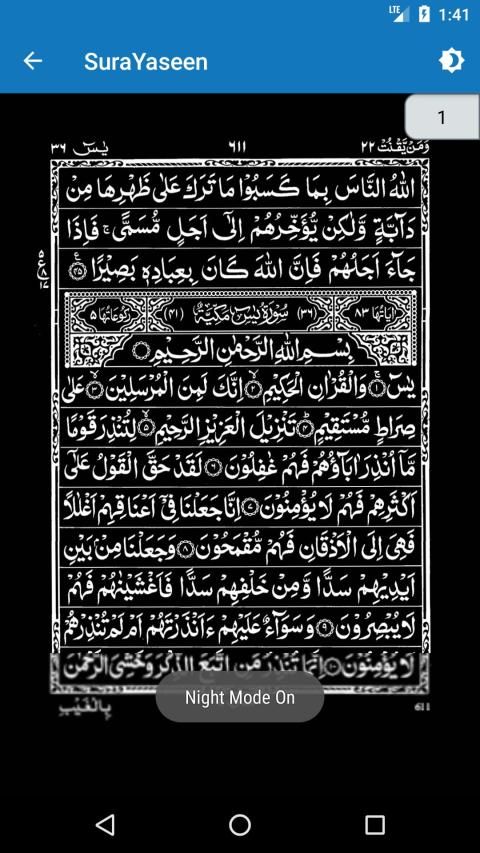 LTE 1:41
SuraYaseen
1
وَمَنْ يَّقْنُتْ ٢٢ ٦١١ يٰسٓ ٣٦
اللهُ النَّاسَ بِمَا كَسَبُوْا مَا تَرَكَ عَلٰى ظَهْرِهَا مِنْ
دَآبَّةٍ وَّلٰكِنْ يُّؤَخِّرُهُمْ اِلٰٓى اَجَلٍ مُّسَمًّى ۚ فَاِذَا
جَآءَ اَجَلُهُمْ فَاِنَّ اللهَ كَانَ بِعِبَادِهٖ بَصِيْرًا ۝٤٥
اٰيَاتُهَا ٨٣ (٣٦) سُوْرَةُ يٰسٓ مَكِّيَّةٌ (٤١) رُكُوْعَاتُهَا ٥
بِسْمِ اللهِ الرَّحْمٰنِ الرَّحِيْمِ ۝
يٰسٓ ۝١ وَالْقُرْاٰنِ الْحَكِيْمِ ۝٢ اِنَّكَ لَمِنَ الْمُرْسَلِيْنَ ۝٣ عَلٰى
صِرَاطٍ مُّسْتَقِيْمٍ ۝٤ تَنْزِيْلَ الْعَزِيْزِ الرَّحِيْمِ ۝٥ لِتُنْذِرَ قَوْمًا
مَّآ اُنْذِرَ اٰبَآؤُهُمْ فَهُمْ غٰفِلُوْنَ ۝٦ لَقَدْ حَقَّ الْقَوْلُ عَلٰٓى
اَكْثَرِهِمْ فَهُمْ لَا يُؤْمِنُوْنَ ۝٧ اِنَّا جَعَلْنَا فِيْٓ اَعْنَاقِهِمْ اَغْلٰلًا
فَهِيَ اِلَى الْاَذْقَانِ فَهُمْ مُّقْمَحُوْنَ ۝٨ وَجَعَلْنَا مِنْۢ بَيْنِ
اَيْدِيْهِمْ سَدًّا وَّمِنْ خَلْفِهِمْ سَدًّا فَاَغْشَيْنٰهُمْ فَهُمْ
لَا يُبْصِرُوْنَ ۝٩ وَسَوَآءٌ عَلَيْهِمْ ءَاَنْذَرْتَهُمْ اَمْ لَمْ تُنْذِرْهُمْ
لَا يُؤْمِنُوْنَ ۝١٠ اِنَّمَا تُنْذِرُ مَنِ اتَّبَعَ الذِّكْرَ وَخَشِيَ الرَّحْمٰنَ
Night Mode On
بِالْغَيْبِ ٦١١